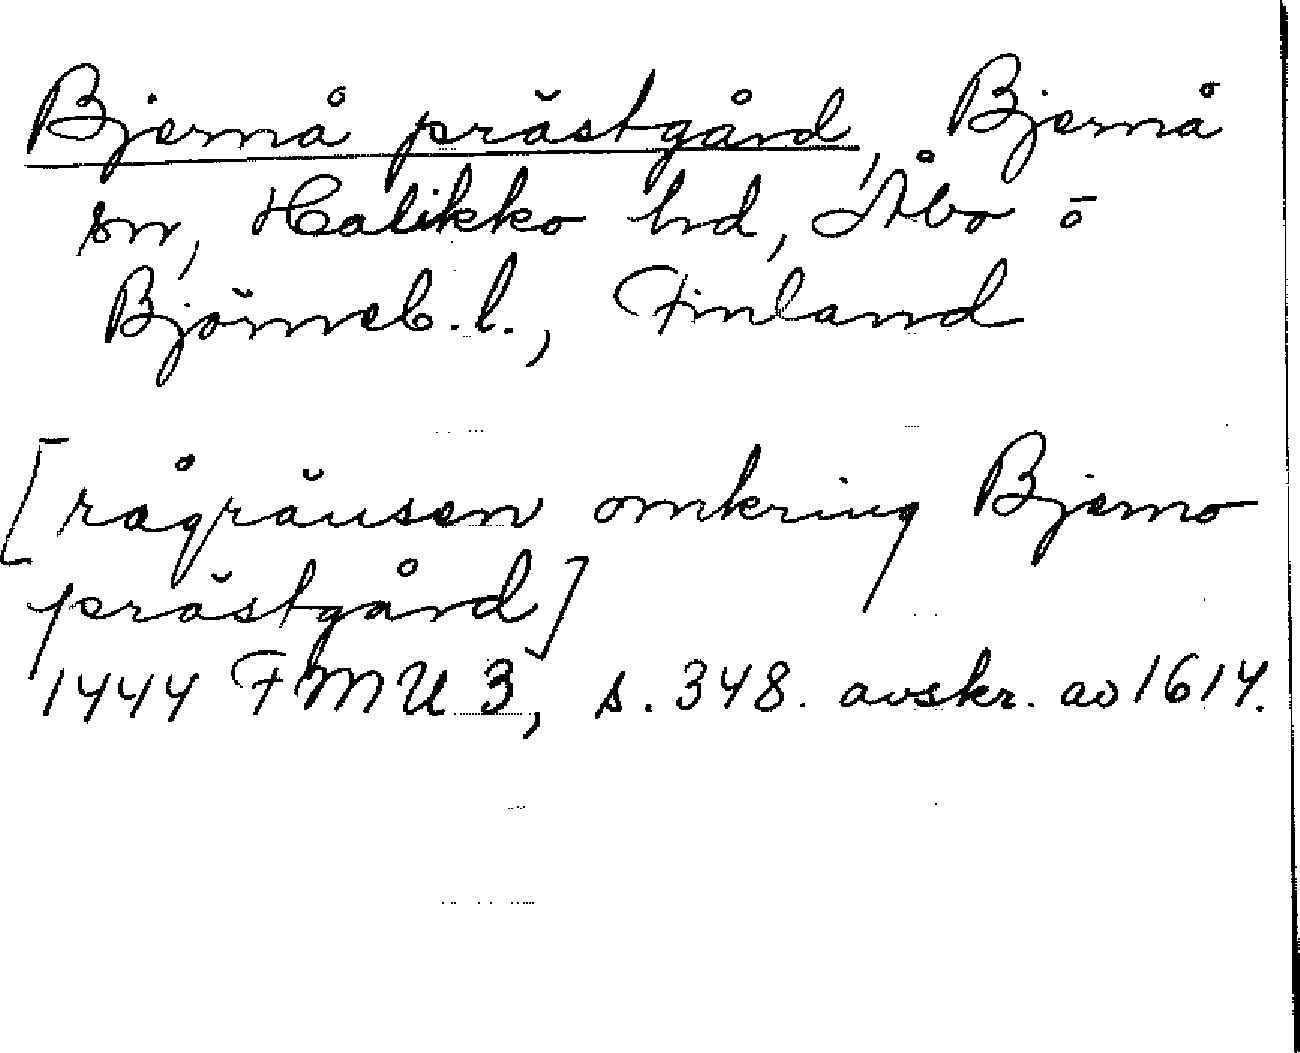 Bjernå prästgård, Bjernå
sn, Halikko hd, Åbo o
Björneb. l., Finland
[rågränsen omkring Bjerno
prästgård]
1444 FMU 3, s. 348. avskr. av 1614.